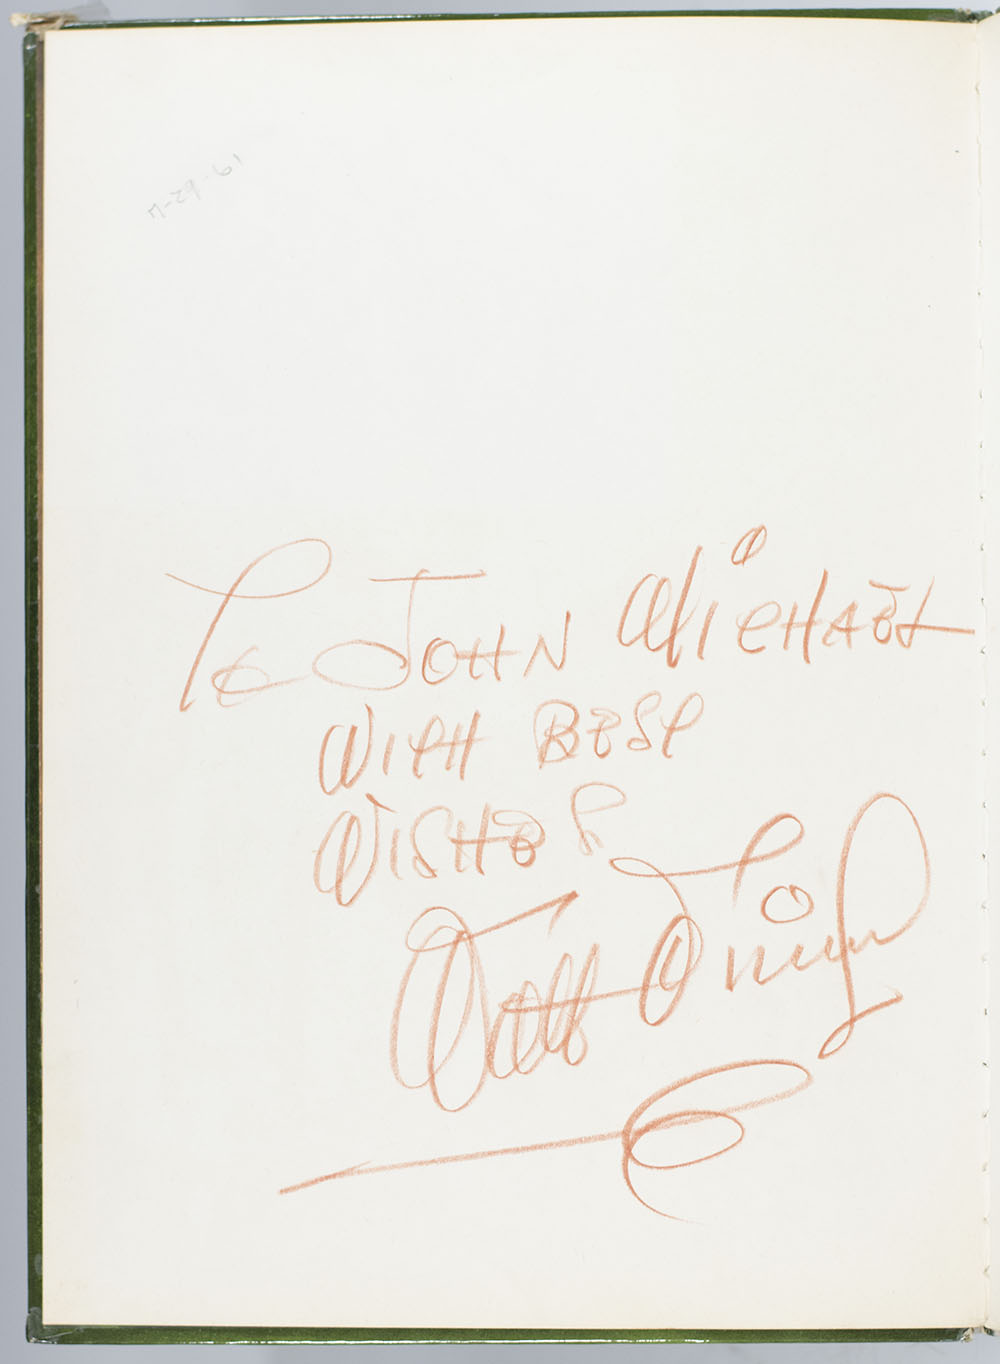 7-29-61
To JOHN MICHAEL
WITH BEST
WISHES
Walt Disney